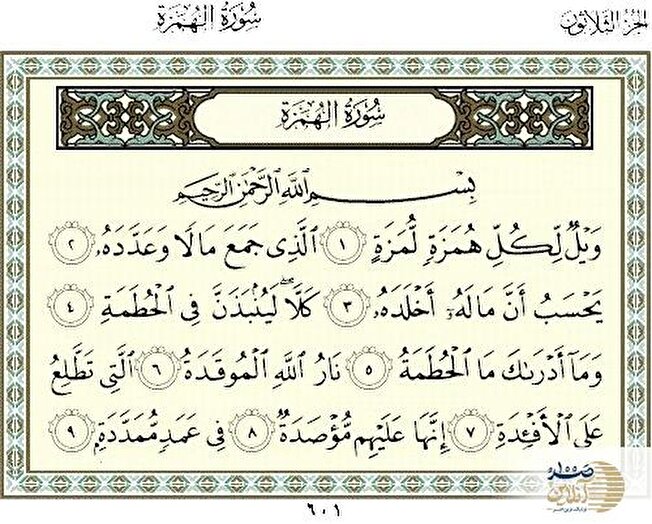 الجزء الثلاثون
سُورَةُ الهُمَزَةِ
سُورَةُ الهُمَزَةِ
بِسْمِ اللَّهِ الرَّحْمَٰنِ الرَّحِيمِ
وَيْلٌ لِّكُلِّ هُمَزَةٍ لُّمَزَةٍ ١ الَّذِى جَمَعَ مَالًا وَعَدَّدَهُۥ ٢
يَحْسَبُ أَنَّ مَالَهُۥٓ أَخْلَدَهُۥ ٣ كَلَّا ۖ لَيُنۢبَذَنَّ فِى الْحُطَمَةِ ٤
وَمَآ أَدْرَىٰكَ مَا الْحُطَمَةُ ٥ نَارُ اللَّهِ الْمُوقَدَةُ ٦ الَّتِى تَطَّلِعُ
عَلَى الْأَفْـِٔدَةِ ٧ إِنَّهَا عَلَيْهِم مُّؤْصَدَةٌ ٨ فِى عَمَدٍ مُّمَدَّدَةٍۭ ٩
صد
آنلاین
٦٠١